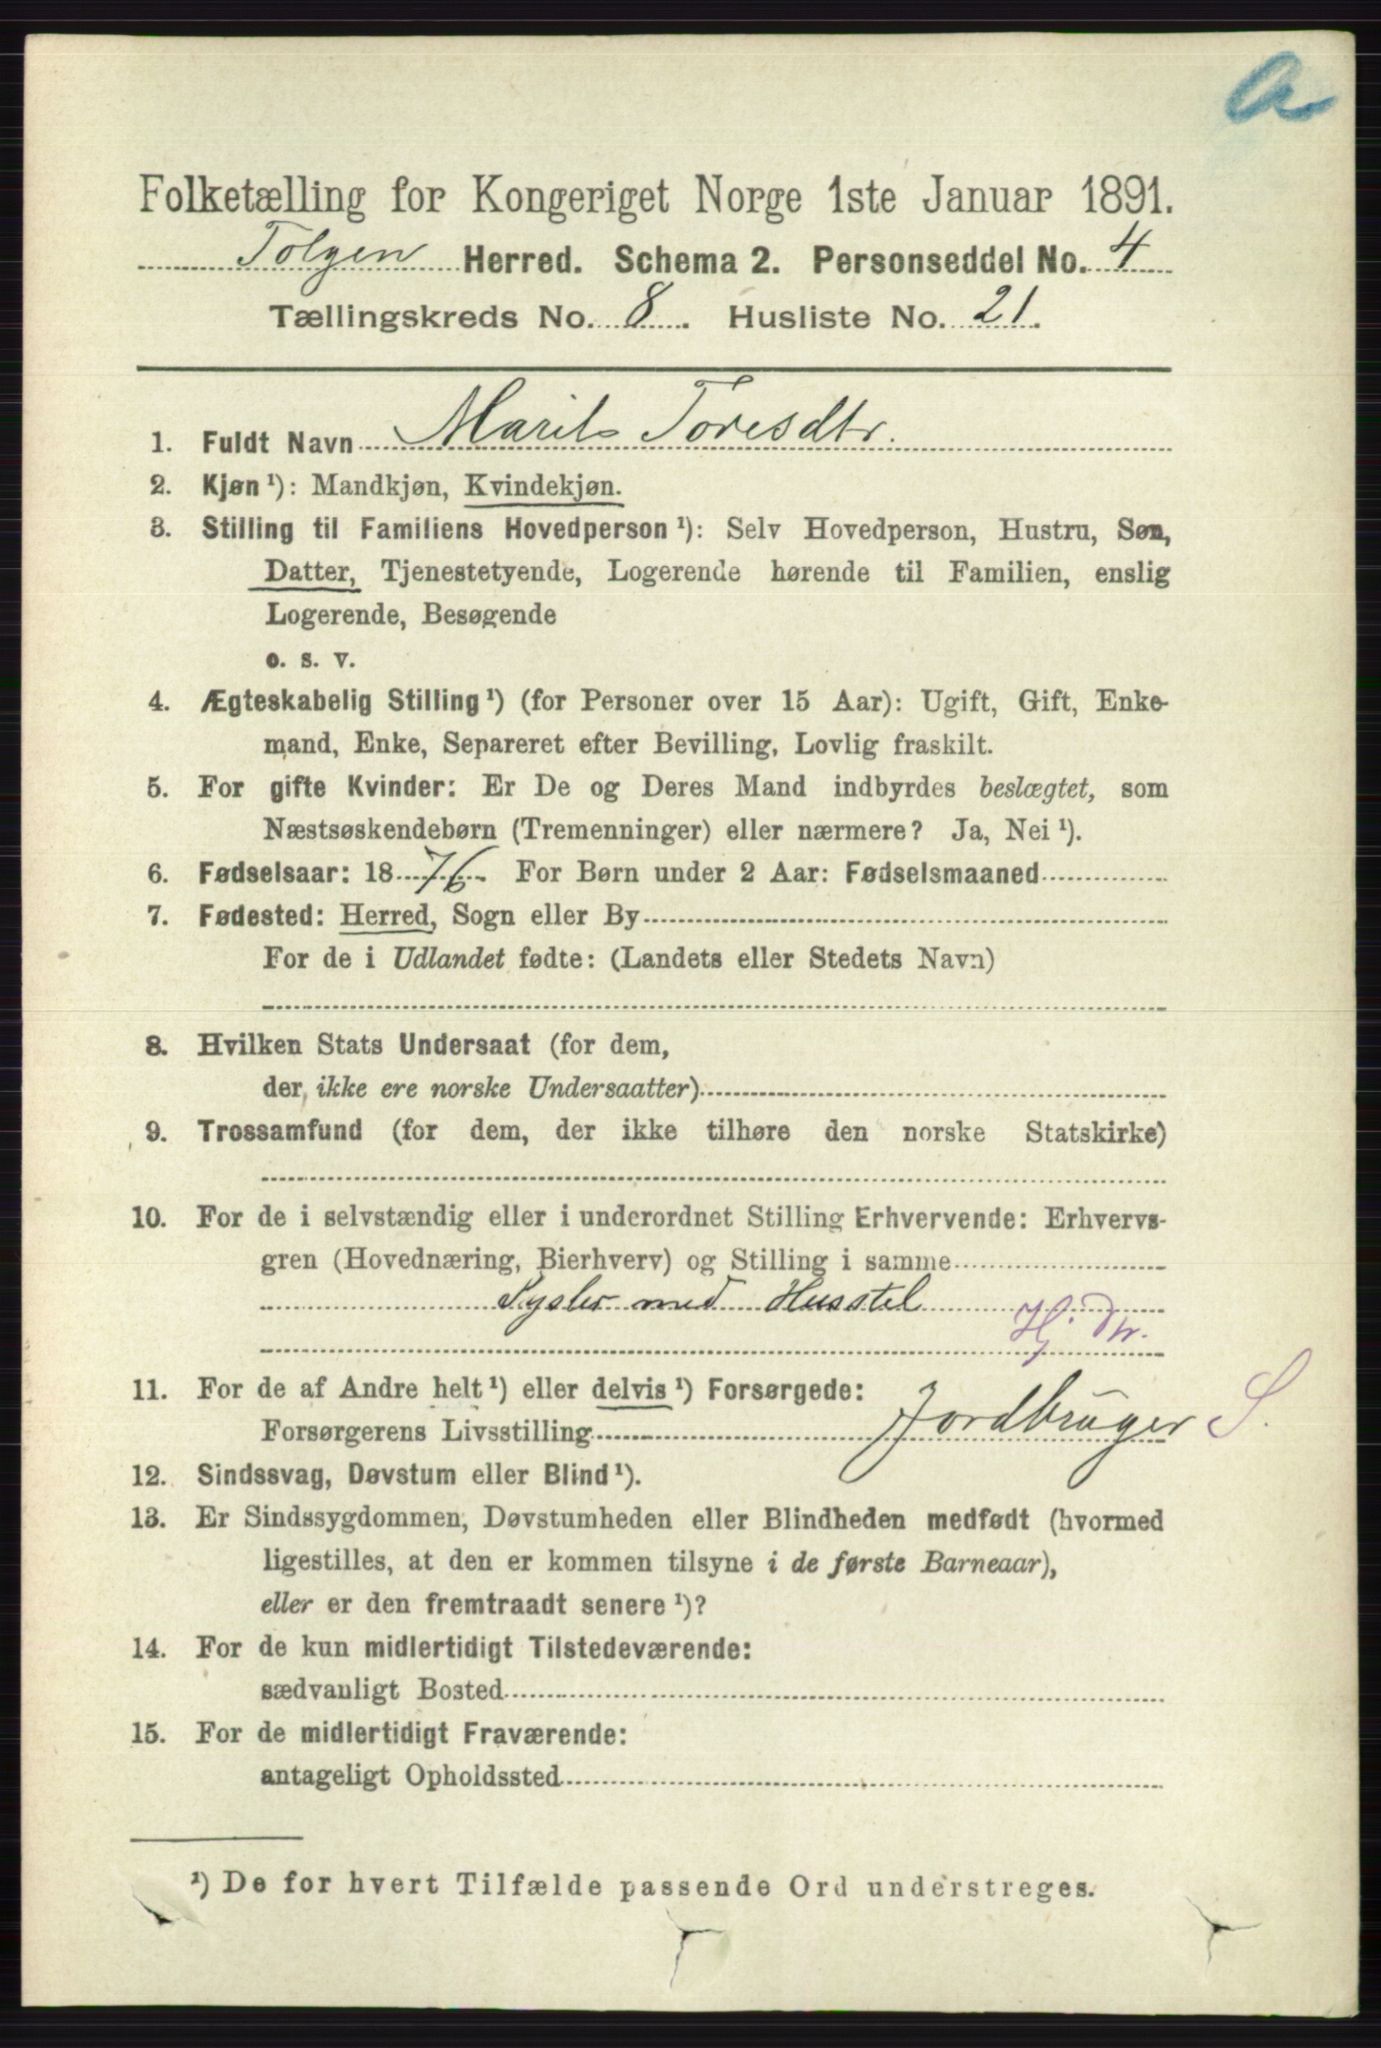 a
Folketælling for Kongeriget Norge 1ste Januar 1891.
Tolgen Herred. Schema 2. Personseddel No. 4
Tællingskreds No. 8. Husliste No. 21.
1. Fuldt Navn Marit Toresdtr.
2. Kjøn ¹): Mandkjøn, Kvindekjøn.
3. Stilling til Familiens Hovedperson ¹): Selv Hovedperson, Hustru, Søn,
Datter, Tjenestetyende, Logerende hørende til Familien, enslig
Logerende, Besøgende
o. s. v.
4. Ægteskabelig Stilling ¹) (for Personer over 15 Aar): Ugift, Gift, Enke-
mand, Enke, Separeret efter Bevilling, Lovlig fraskilt.
5. For gifte Kvinder: Er De og Deres Mand indbyrdes beslægtet, som
Næstsøskendebørn (Tremenninger) eller nærmere? Ja, Nei ¹).
6. Fødselsaar: 1876. For Børn under 2 Aar: Fødselsmaaned
7. Fødested: Herred, Sogn eller By
For de i Udlandet fødte: (Landets eller Stedets Navn)
8. Hvilken Stats Undersaat (for dem,
der ikke ere norske Undersaatter)
9. Trossamfund (for dem, der ikke tilhøre den norske Statskirke)
10. For de i selvstændig eller i underordnet Stilling Erhvervende: Erhvervs-
gren (Hovednæring, Bierhverv) og Stilling i samme
Sysler med Husstel
Hj. Dr.
11. For de af Andre helt ¹) eller delvis ¹) Forsørgede:
Forsørgerens Livsstilling Jordbruger S.
12. Sindssvag, Døvstum eller Blind ¹).
13. Er Sindssygdommen, Døvstumheden eller Blindheden medfødt (hvormed
ligestilles, at den er kommen tilsyne i de første Barneaar),
eller er den fremtraadt senere ¹)?
14. For de kun midlertidigt Tilstedeværende:
sædvanligt Bosted
15. For de midlertidigt Fraværende:
antageligt Opholdssted
¹) De for hvert Tilfælde passende Ord understreges.